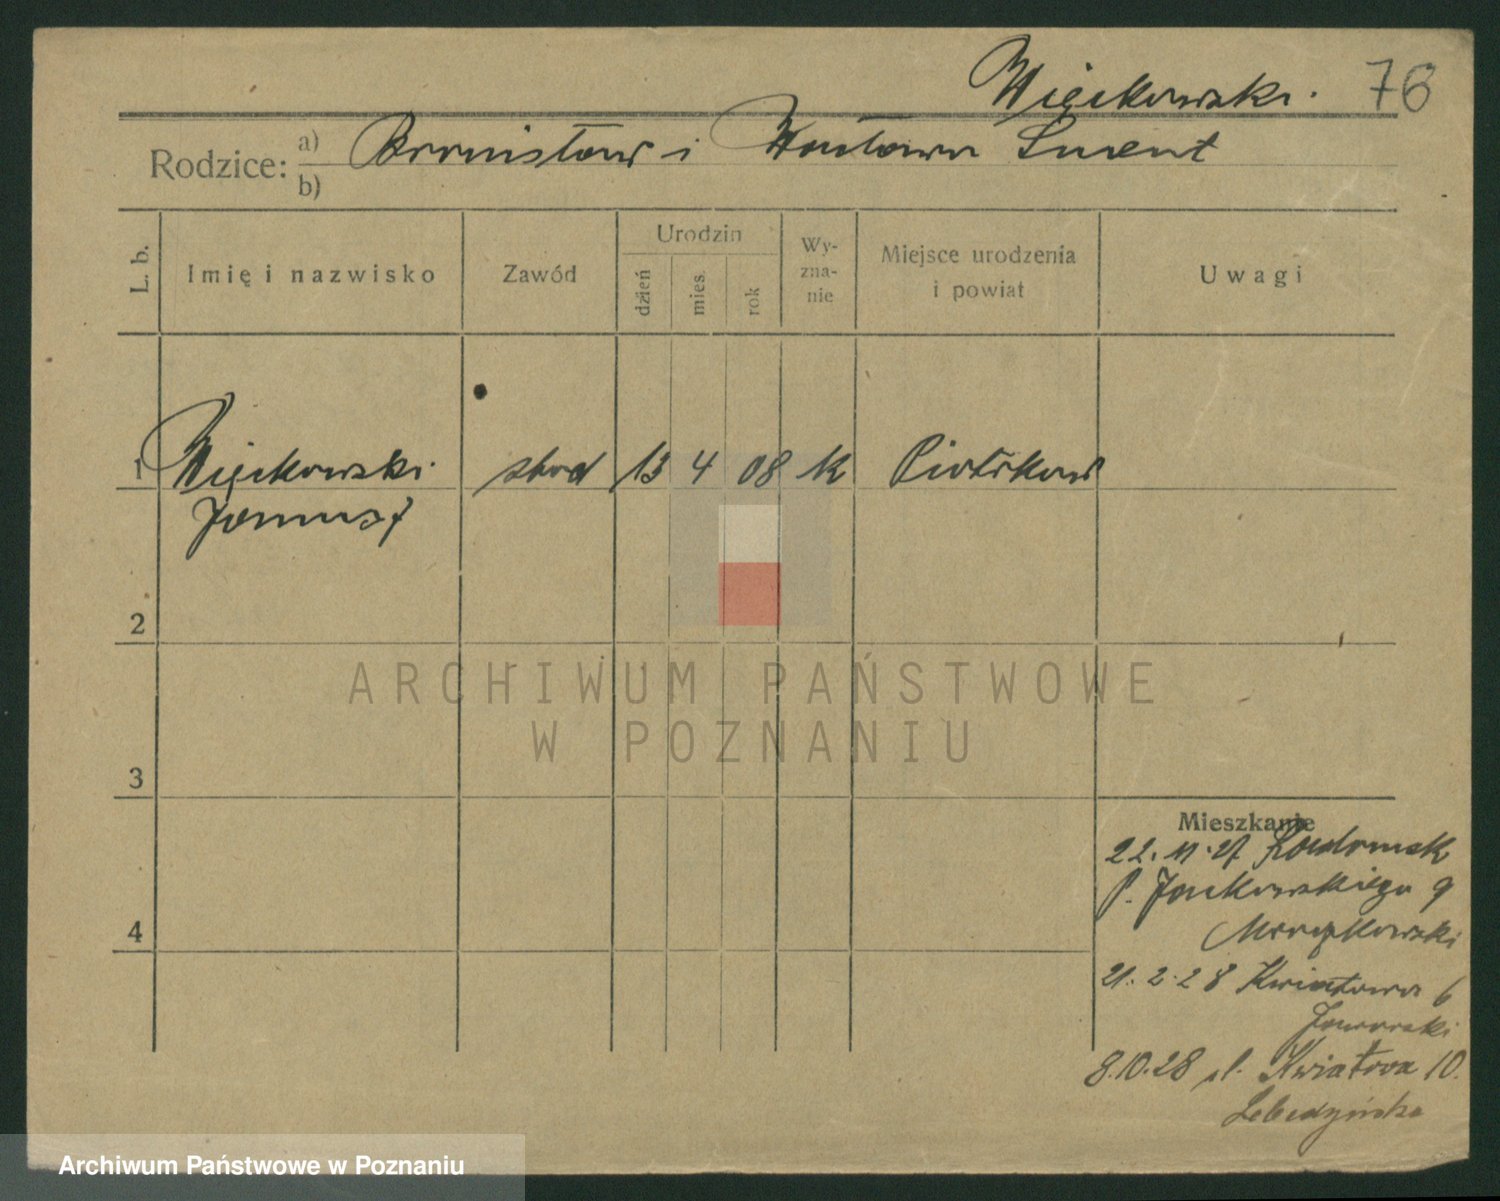 Więckowski. 76
Rodzice: a) Bronisław i Wacława Sment
b)
L. b. Imię i nazwisko Zawód Urodzin dzień mies. rok Wy-zna-nie Miejsce urodzenia i powiat Uwagi
1 Więckowski stud 13 4 08 k Piotrków
Janusz
2
ARCHIWUM PAŃSTWOWE
W POZNANIU
3
Mieszkanie
22.11.27 Radomsk
P. Jackowskiego 9
4
21.2.28 Kwiatowa 6
Jaworski
8.10.28 ul. Kwiatowa 10.
Lebedzińska
Archiwum Państwowe w Poznaniu